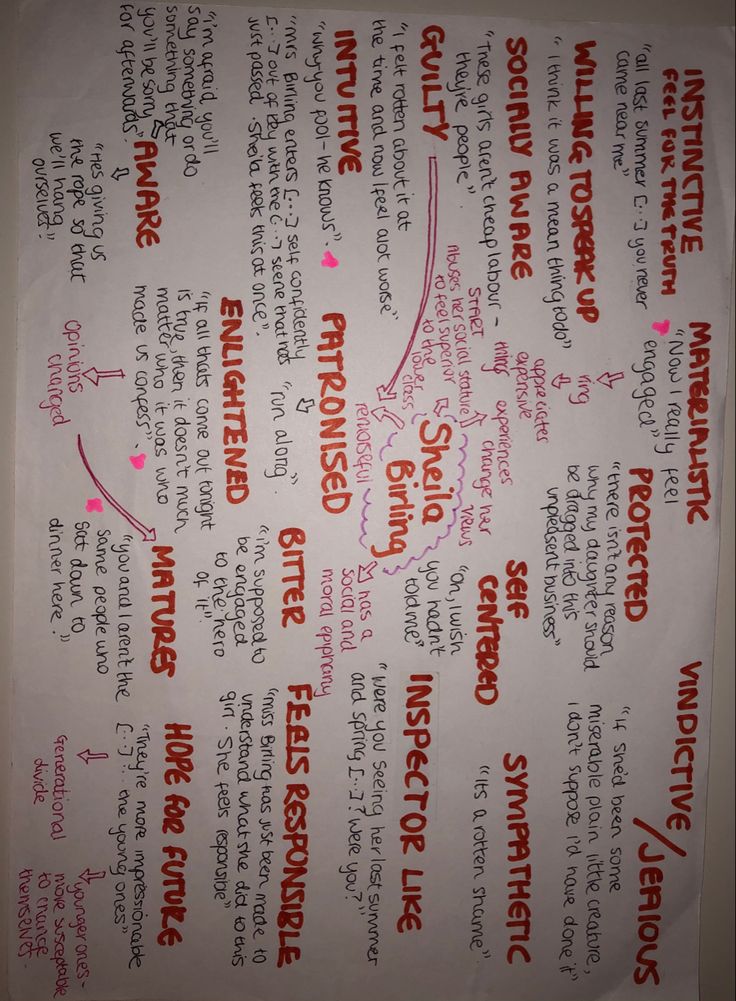 INSTINCTIVE
FEEL FOR THE TRUTH
"all last summer [...] you never
came near me"
WILLING TO SPEAK UP
"I think it was a mean thing to do"
SOCIALLY AWARE
"These girls aren't cheap labour -
they're people".
GUILTY
"I felt rotten about it at
the time and now I feel alot worse"
INTUITIVE
"why you fool - he knows".
"mrs Birling enters [...] self confidently
[...] out of key with the [...] scene that has
just passed. Sheila feels this at once".
"i'm afraid you'll
say something or do
something that
you'll be sorry
for afterwards".
AWARE
"Hes giving us
the rope so that
we'll hang
ourselves".
MATERIALISTIC
"Now I really feel
engaged"
ring
appreciates
expensive
things
START
abuses her social stature
to feel superior
to the
lower
class
experiences
change her
views
Sheila
Birling
remorseful
has a
social and
moral epiphany
PATRONISED
"run along".
ENLIGHTENED
"If all thats come out tonight
is true, then it doesn't much
matter who it was who
made us confess".
Opinions
changed
PROTECTED
"there isn't any reason
why my daughter should
be dragged into this
unpleasent business"
SELF
CENTERED
"Oh, I wish
you hadn't
told me"
BITTER
"i'm supposed to
be engaged
to the hero
of it".
MATURES
"you and I aren't the
same people who
sat down to
dinner here."
VINDICTIVE/JEALOUS
"If she'd been some
miserable plain, little creature,
I don't suppose I'd have done it"
SYMPATHETIC
"Its a rotten shame".
INSPECTOR LIKE
"were you seeing her last summer
and spring [...]? Were you?"
FEELS RESPONSIBLE
"miss Birling has just been made to
understand what she did to this
girl. She feels responsible"
HOPE FOR FUTURE
"They're more impressionable
[...] the young ones"
Generational
divide
younger ones -
more susceptable
to change
themselves.